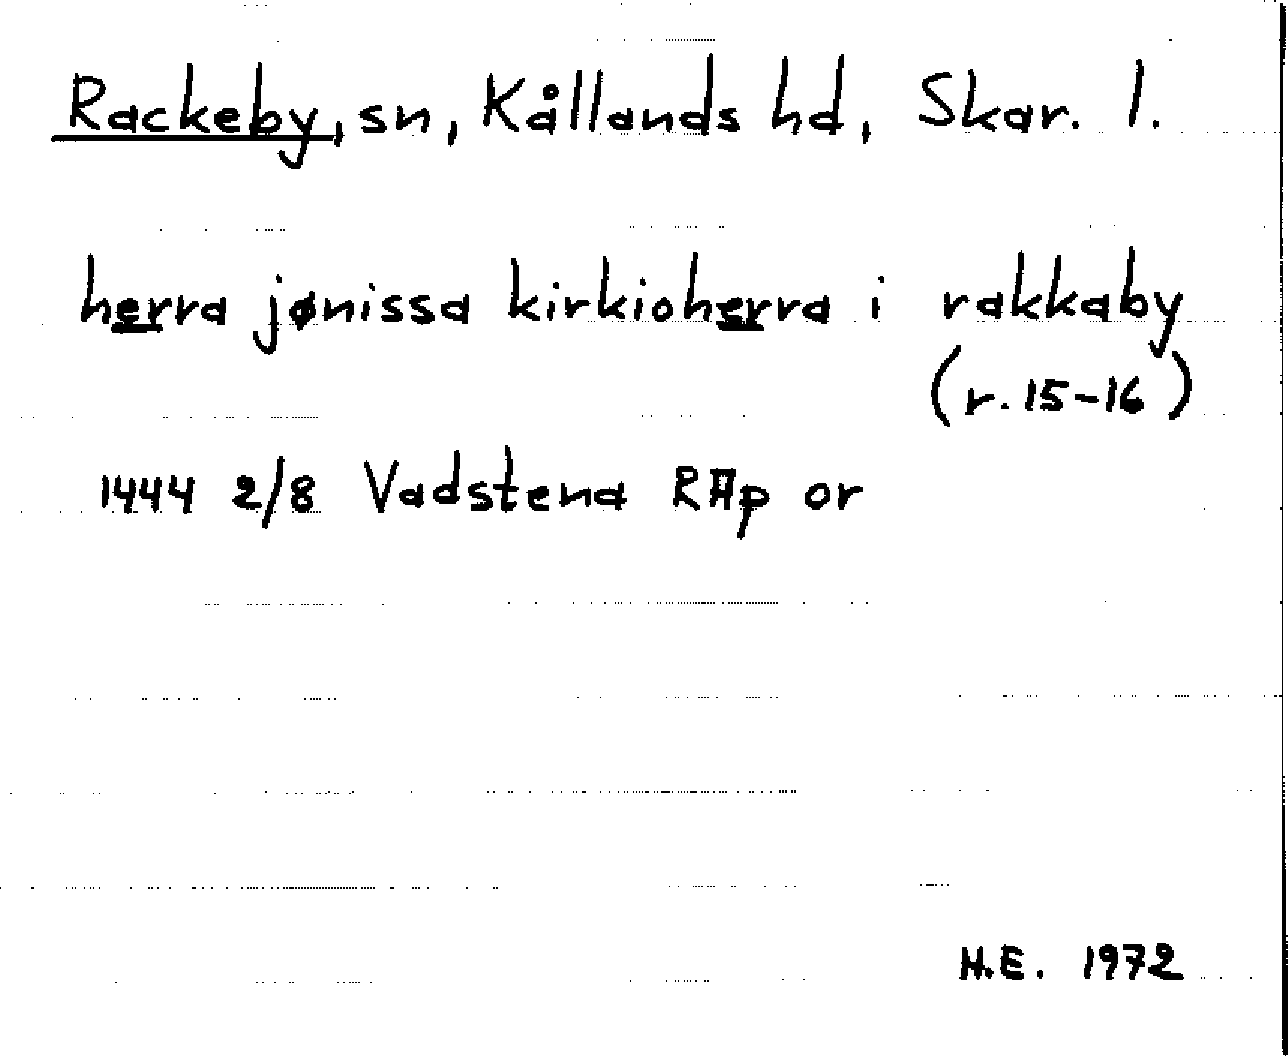 Rackeby, sn, Kållands hd, Skar. l.
herra jønissa kirkioherra i rakkaby
(r. 15-16)
1444 2/8 Vadstena RAp or
H.E. 1972